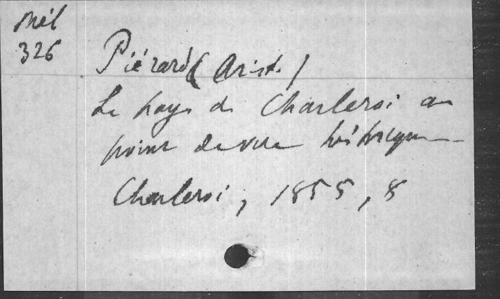 Mél
326
Piérard (Arist.)
Le pays de Charleroi au
point de vue historique
Charleroi, 1855, 8